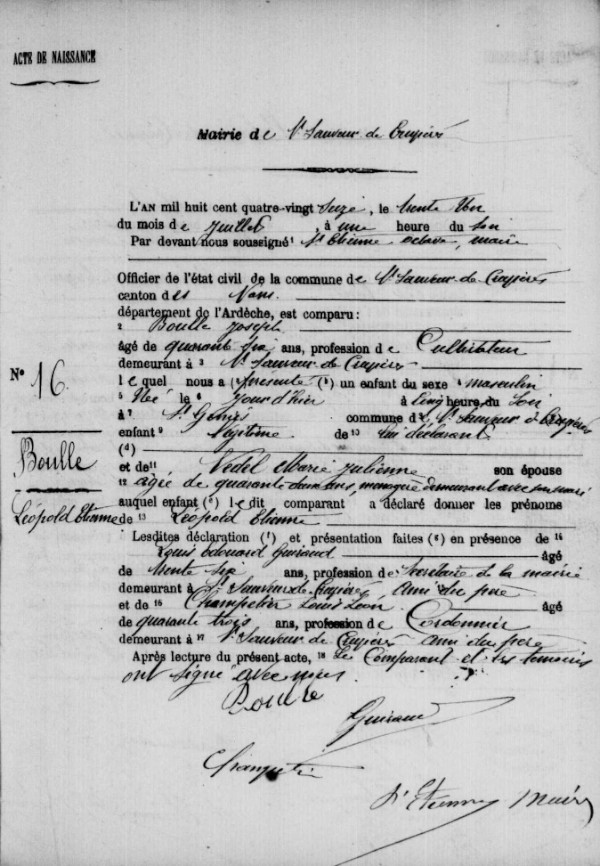 ACTE DE NAISSANCE
Mairie de St Sauveur de Cruzières
L'AN mil huit cent quatre-vingt seize, le trente un
du mois de Juillet, à une heure du soir
Par devant nous soussigné 1 St Etienne Octave, maire
Officier de l'état civil de la commune de St Sauveur de Cruzières
canton des Vans
département de l'Ardèche, est comparu:
2 Boulle Joseph
âgé de quarante six ans, profession de Cultivateur
demeurant à 3 St Sauveur de Cruzières
N° 16.
lequel nous a (1) présenté (2) un enfant du sexe 4 masculin
5 Né le 6 jour d'hier à cinq heure du soir
à 7 St Genies commune de St Sauveur d Cruzières
enfant 9 légitime de 10 lui déclarant
Boulle
Léopold Etienne
(d)
et de 11 Vedel Marie Julienne son épouse
12 agée de quarante deux ans, ménagère demeurant avec son mari
auquel enfant (2) le dit comparant a déclaré donner les prénoms
de 13 Léopold Etienne
Lesdites déclaration (1) et présentation faites (2) en présence de 14
Louis Edouard Guiraud âgé
de trente six ans, profession de Secrétaire de la mairie
demeurant à 15 St Sauveur de Cruzières, ami du père
et de 16 Champetier Louis Léon âgé
de quarante trois ans, profession de Cordonnier
demeurant à 17 St Sauveur de Cruzières ami du père
Après lecture du présent acte, 18 Le Comparant et les temoins
ont signé avec nous
Boulle
Guiraud
Champetier
St Etienne Maire